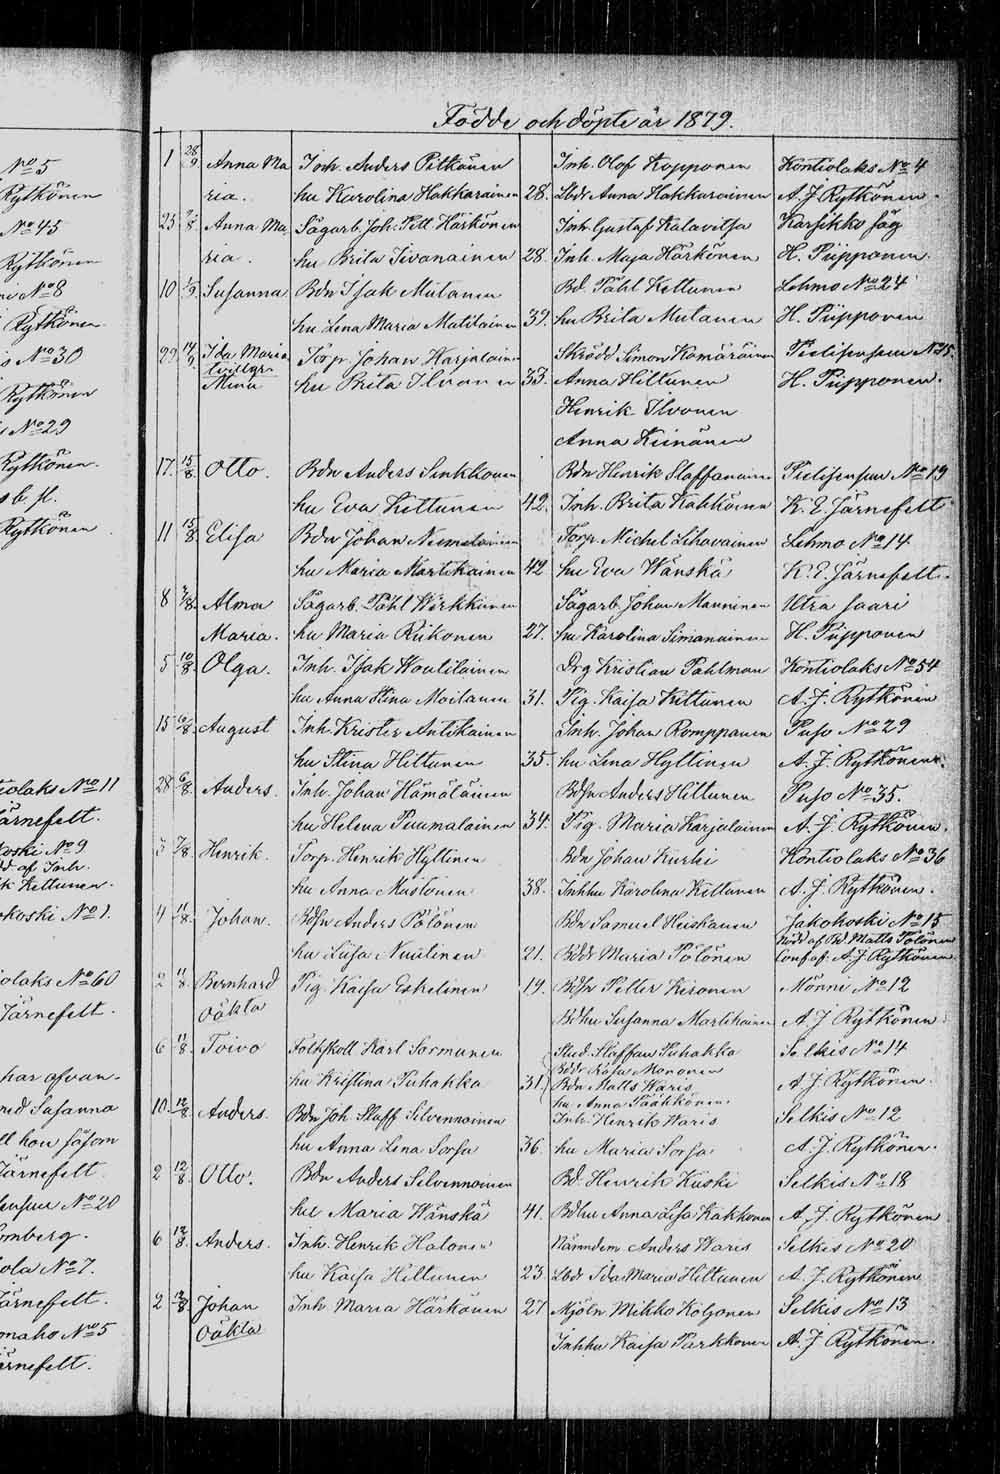 Födde och döpte år 1879.
No 5
Rytkönen
No 45
Rytkönen
No 8
Rytkönen
No 30
Rytkönen
No 29
Rytkönen
Rytkönen
No 11
No 9
af Inh.
Kettunen.
No 1.
No 60
Järnefelt.
har afvan-
Susanna
hon såsom
Järnefelt
No 20
No 7.
Järnefelt.
No 5
1 28/9 Anna Ma Inh. Anders Pitkänen Inh. Olof Kopponen Kontiolaks No 4
ria. hu Karolina Hakkarainen 28. Lbdr Anna Hakkarainen A. J Rytkönen.
25 Anna Ma Sågarb. Joh. Pett. Härkönen Inh. Gustaf Kalavitsa Karsikko såg
ria. hu Brita Tivanainen 28. Inh. Maja Härkönen H. Piipponen.
10 Susanna Bdn Isak Mutanen Bd. Påhl Kettunen Lehmo No 24
hu Lena Maria Matilainen 39. hu Brita Mutanen H. Piipponen
29 14/9 Ida Maria Torp. Johan Karjalainen Skrädd Simon Kämäräinen Pielisensuu No 5.
tvillgr.
Mina hu Brita Ilvonen 33. Anna Hiltunen H. Piipponen.
Henrik Ilvonen
Anna Keinänen
17. 15/8 Otto. Bdn Anders Sinkkonen Bdn Henrik Staffanainen Pielisensuu No 19
hu Eva Kettunen 42. Inh. Brita Kakkönen K. E. Järnefelt
11 15/8 Elisa Bdn Johan Nemelainen Torp. Michel Lihavainen Lehmo No 14
hu Maria Martikainen 42 hu Eva Wänskä K. E. Järnefelt.
8 Alma Sågarb. Påhl Wirkkunen Sågarb. Johan Manninen Utra saari
Maria. hu Maria Riikonen 27. hu Karolina Simanainen H. Piipponen
5 10/8 Olga. Inh. Isak Woutilainen Drg Kristian Pahlman Kontiolaks No 54
hu Anna Stina Moilanen 31. Pig. Kaisa Kettunen A. J. Rytkönen
15 6/8 August Inh. Krister Antikainen Inh. Johan Romppanen Puso No 29
hu Stina Hiltunen 35. hu Lena Hyttinen A. J. Rytkönen.
28 6/8 Anders. Inh. Johan Hämäläinen Bdsn Anders Hiltunen Puso No 35.
hu Helena Puumalainen 34. Pig. Maria Karjalainen A. J. Rytkönen.
3 7/8 Henrik. Torp. Henrik Hyttinen Bdn Johan Kurki Kontiolaks No 36
hu Anna Mustonen 38. Inhhu Karolina Kettunen A. J. Rytkönen.
4 11/8 Johan. Bdsn Anders Pölönen Bdn Samuel Heiskanen Jakokoski No 15
Nödd af Bd. Matts Pölönen
hu Luisa Nuutinen 21. Bddr Maria Pölönen Conf. af. A. J. Rytkönen
2 11/8 Bernhard Pig. Kaisa Eskelinen 19. Bdsn Petter Kisonen Mönni No 12
oäkta Bdhu Susanna Martikainen A. J. Rytkönen.
6 11/8 Toivo Folkskoll Karl Sormunen Stud. Staffan Puhakka Selkis No 14
Bddr Rosa Mononen
hu Kristina Puhakka 31. Bdn Matts Waris A. J. Rytkönen.
hu Anna Pääkkönen.
10 12/8 Anders. Bdn Joh. Staff. Silvennoinen Inh. Henrik Waris Selkis No 12
hu Anna Lena Sorsa 36. hu Maria Sorsa A. J. Rytkönen.
2 12/8 Otto. Bdn Anders Silvennoinen Bd. Henrik Kuski Selkis No 18
hu Maria Wänskä 41. Bdhu Anna Lisa Kakkonen A. J. Rytkönen
6 12/8 Anders. Inh. Henrik Halonen Nämndem Anders Waris Selkis No 20
hu Kaisa Hiltunen 23. Lbdr Ida Maria Hiltunen A. J. Rytkönen
2 12/8 Johan Inh. Maria Härkönen 27 Mjöln. Mikko Koljonen Selkis No 13
oäkta Inhhu Kaisa Parkkonen A. J Rytkönen.